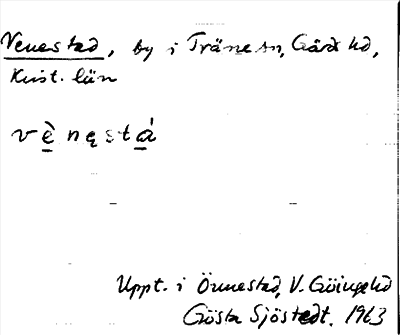 Venestad, by i Träne sn, Gärds hd,
Krist. län
vè̱ nęstá̱
Uppt. i Önnestad, V. Göinge hd
Gösta Sjöstedt. 1963